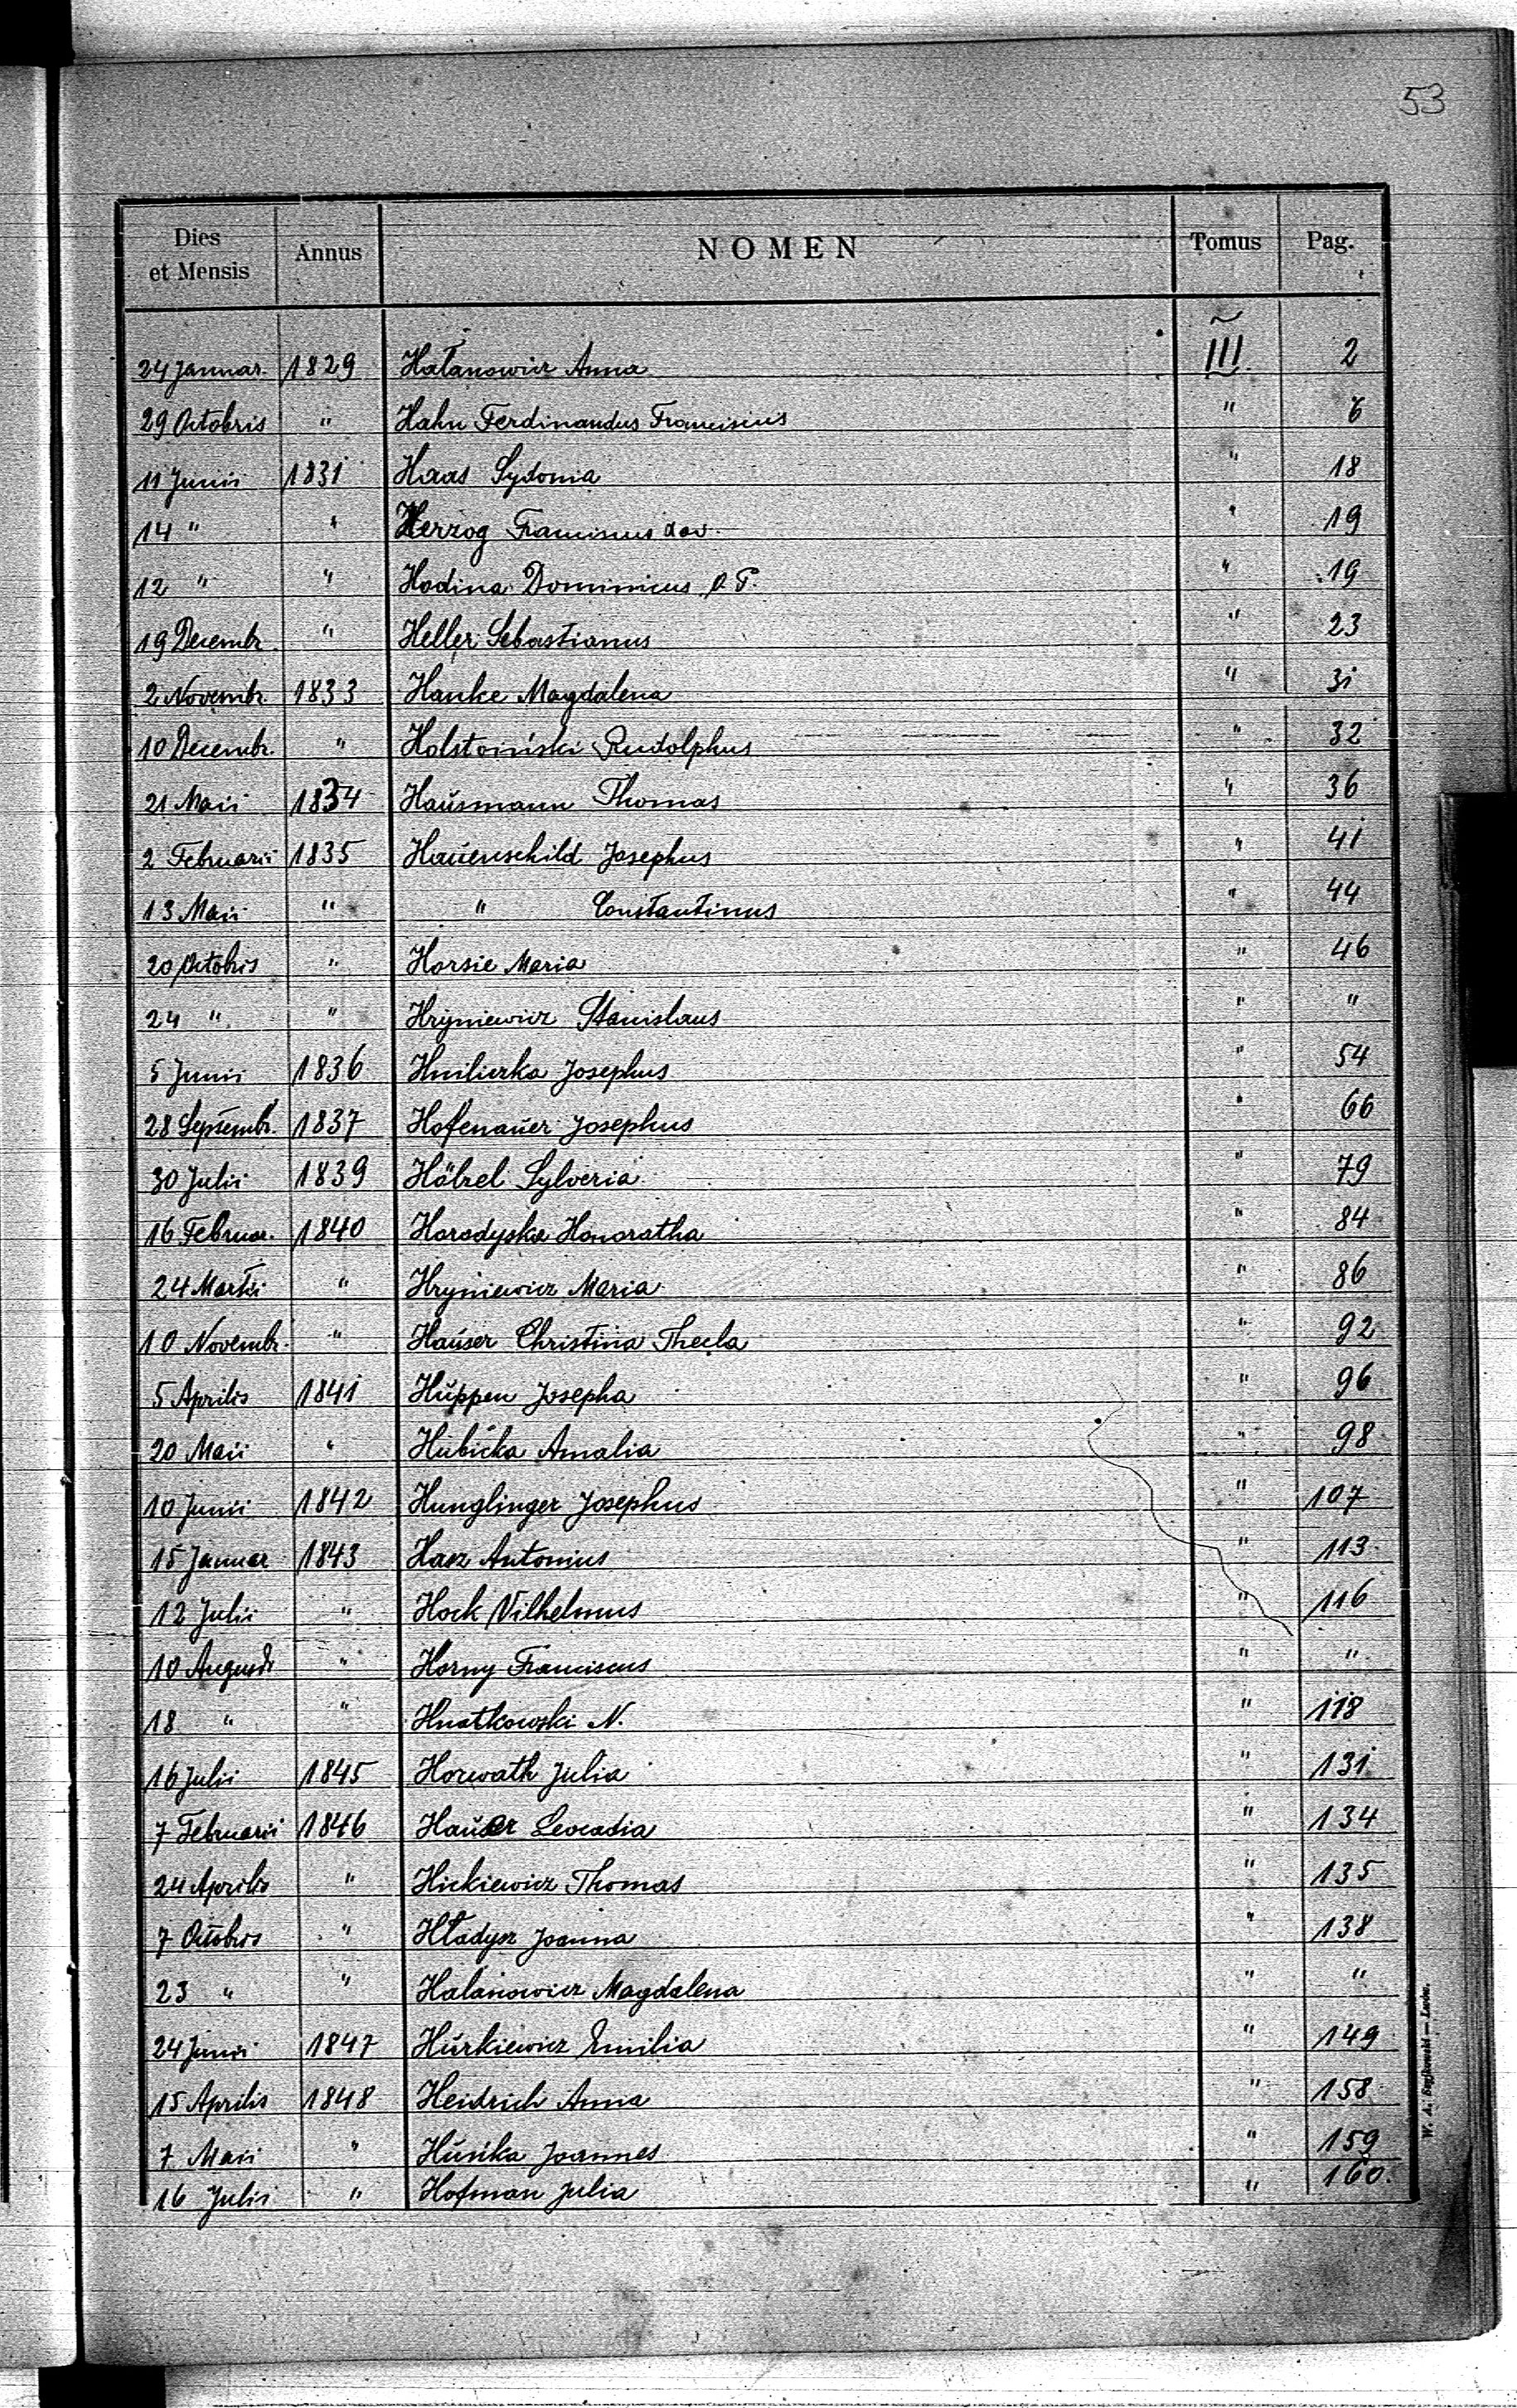 53
Dies et Mensis Annus NOMEN Tomus Pag.
24 Januar. 1829 Hałanowicz Anna III. 2
29 Octobris " Hahn Ferdinandus Franciscus " 6
11 Junii 1831 Haas Sydonia " 18
14 " " Herzog Franciscus " 19
12 " " Hodina Dominicus " 19
19 Decembr. " Heller Sebastianus " 23
2 Novembr. 1833 Hanke Magdalena " 31
10 Decembr. " Holstoński Rudolphus " 32
21 Maii 1834 Haŭsmann Thomas " 36
2 Februarii 1835 Haŭenschild Josephus " 41
13 Maii " " Constantinus " 44
20 Octobris " Horsie Maria " 46
24 " " Hryniewicz Stanislaus " "
5 Junii 1836 Hniliczka Josephus " 54
28 Septembr. 1837 Hofenaŭer Josephus " 66
30 Julii 1839 Hölzel Sylveria " 79
16 Februar. 1840 Horodyska Honoratha " 84
24 Martii " Hryniewicz Maria " 86
10 Novembr. " Haŭser Christina Thecla " 92
5 Aprilis 1841 Hŭppen Josepha " 96
20 Maii " Hŭbicka Amalia " 98
10 Junii 1842 Hunglinger Josephus " 107
15 Januar 1843 Hasz Antonius " 113
12 Julii " Hock Vilhelmus " 116
10 Augusti " Horny Franciscus " "
18 " " Hnatkowski N. " 118
16 Julii 1845 Horwath Julia " 131
7 Februarii 1846 Haŭser Leocadia " 134
24 Aprilis " Hickiewicz Thomas " 135
7 Octobris " Hładysz Joanna " 138
23 " " Halanowicz Magdalena " "
24 Junii 1847 Hŭrkiewicz Emilia " 149
15 Aprilis 1848 Heidrich Anna " 158
7 Maii " Joannes " 159
16 Julii " Hofman Julia " 160.